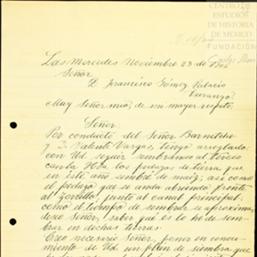 CENTRO DE
ESTUDIOS
DE HISTORIA
DE MEXICO
FUNDACIÓN
Las Mercedes Noviembre 23 de
Señor
D. Francisco Gómez Palacio
Durango
Muy Señor mío, de mi mayor respeto.
Señor
Por conducto del Señor
y D. Valente Vargas, tengo arreglado
con Ud. seguir sembrando al tercio
los pedazos de tierra que
en este año sembré de maíz, así como
el pedazo que se anda abriendo frente
al junto al
como el tiempo de sembrar se aproxima
deseo Señor, saber que es lo he de sem-
brar en dichas tierras
Creo necesario Señor, poner en conoci-
miento de Ud. un plan de siembra que